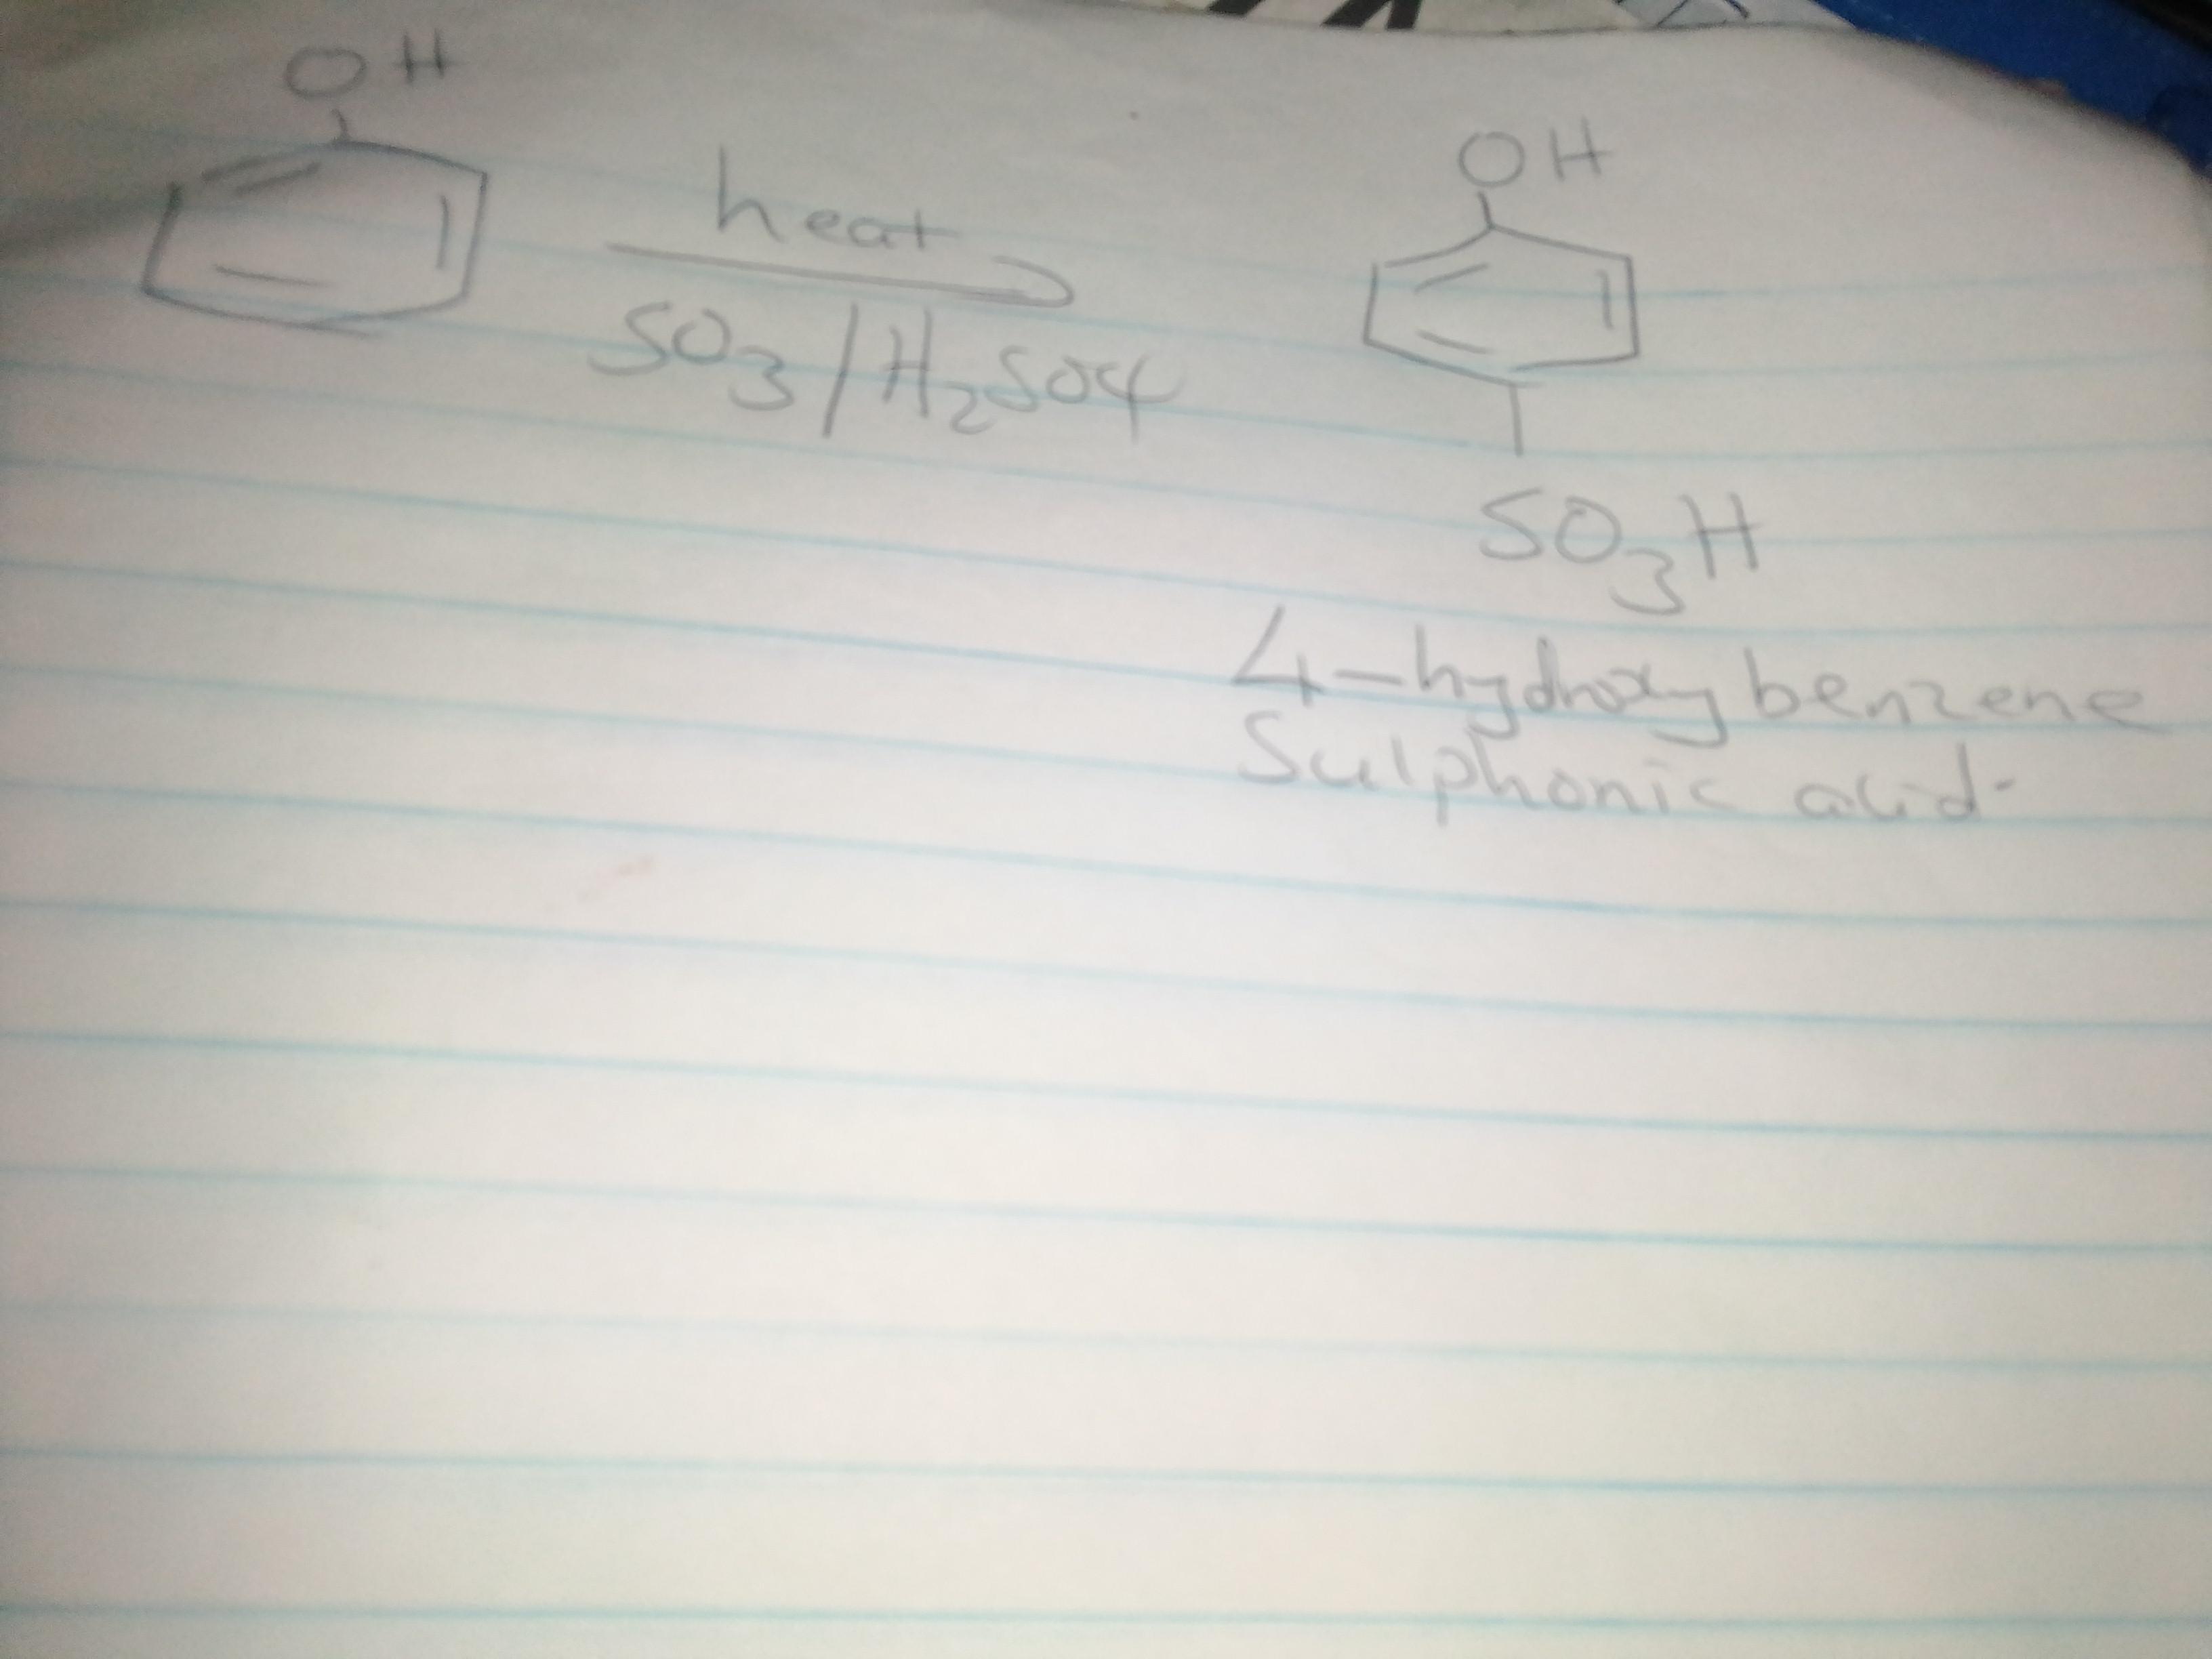 OH
heat
SO3/H2SO4
OH
SO3H
4-hydroxy benzene
Sulphonic acid.